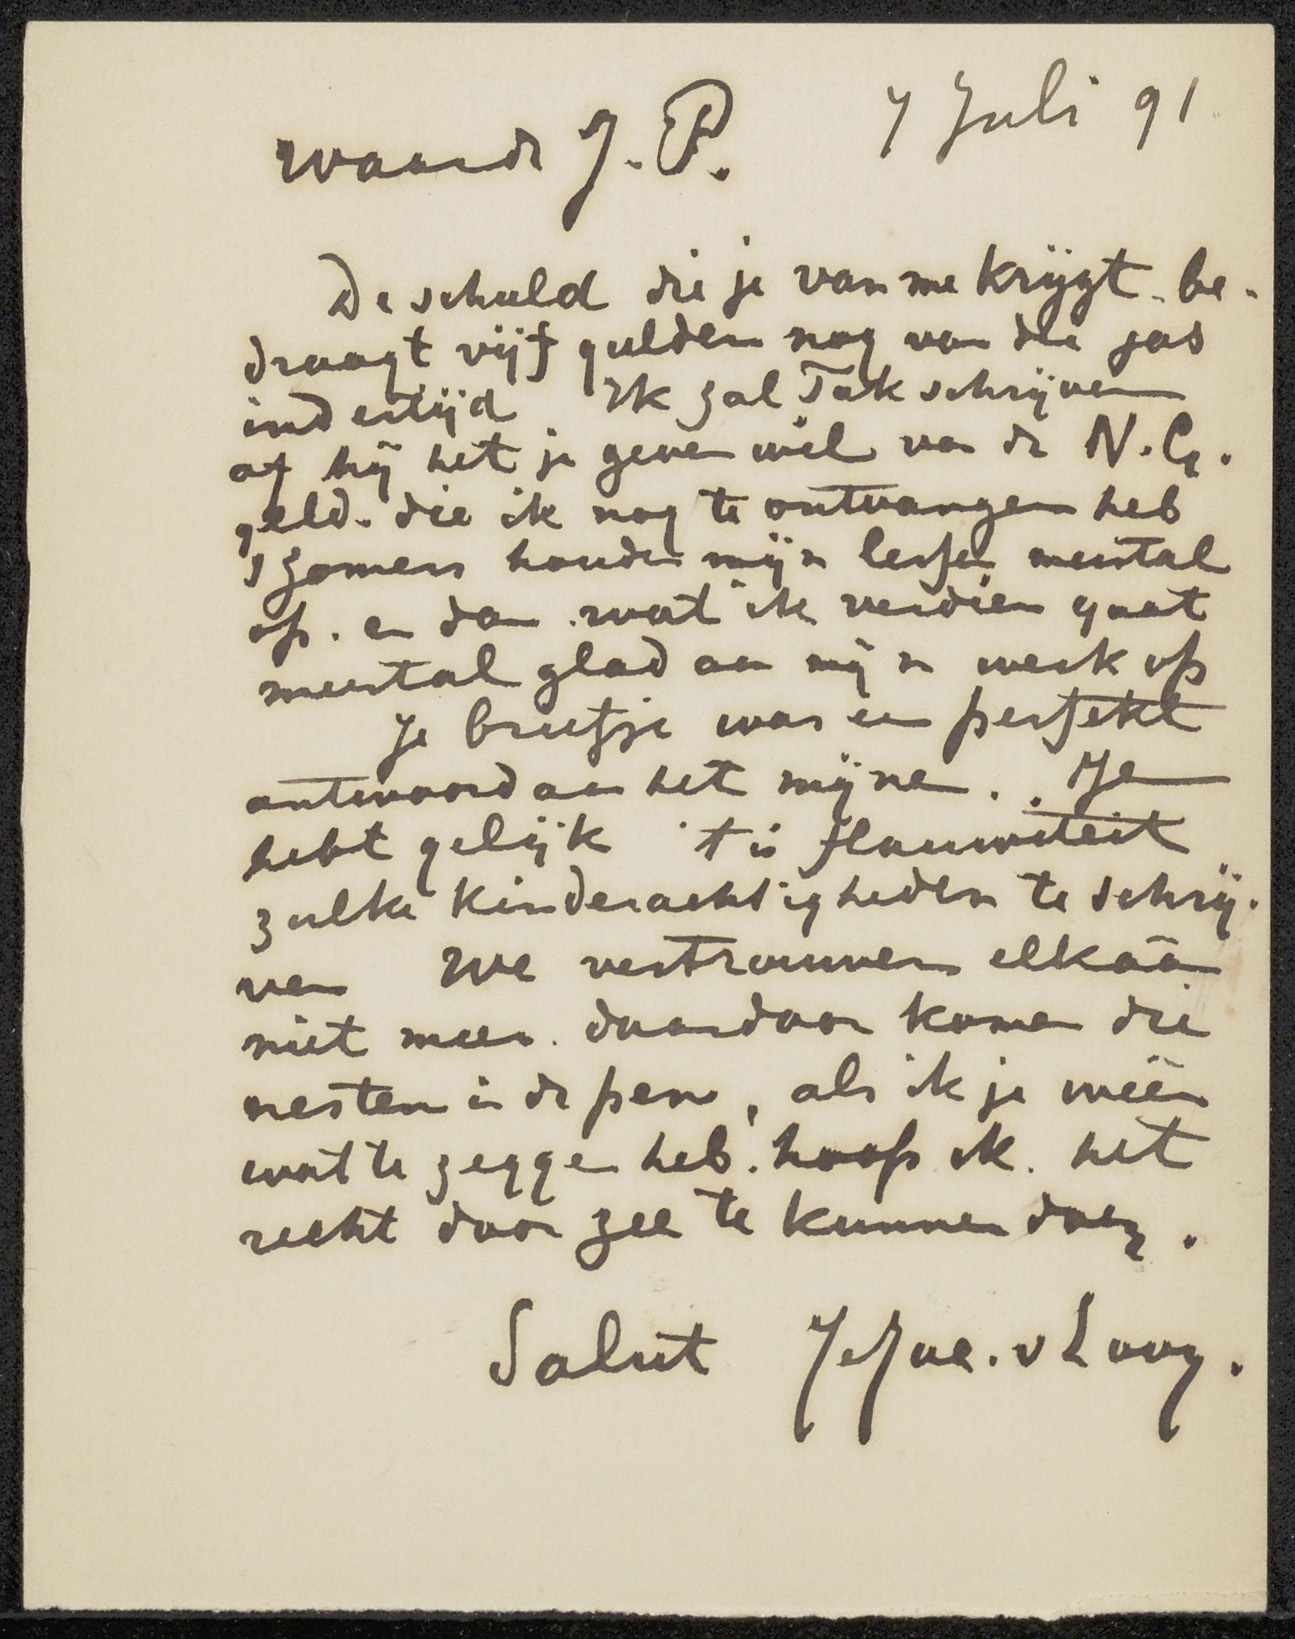 7 Juli 91
Waarde J. P.
De schuld die je van me krijgt be-
draagt vijf gulden nog van die jas
indertijd Ik zal Tak schrijven
of hij het je geven wil van de N. G.
geld. die ik nog te ontvangen heb
's Zomers houden mijn lessen meestal
op. en dan wat ik verdien gaat
meestal glad aan mijn werk op
Je briefje was een perfekt
antwoord aan het mijne. Je
hebt gelijk 't is flauwiteit
zulke kinderachtigheden te schrij-
ven We vertrouwen elkaar
niet meer. daardoor komen die
nesten in de pen, als ik je weêr
wat te zeggen heb. hoop ik het
recht door zee te kunnen doen.
Salut Je Jac. v Looy.